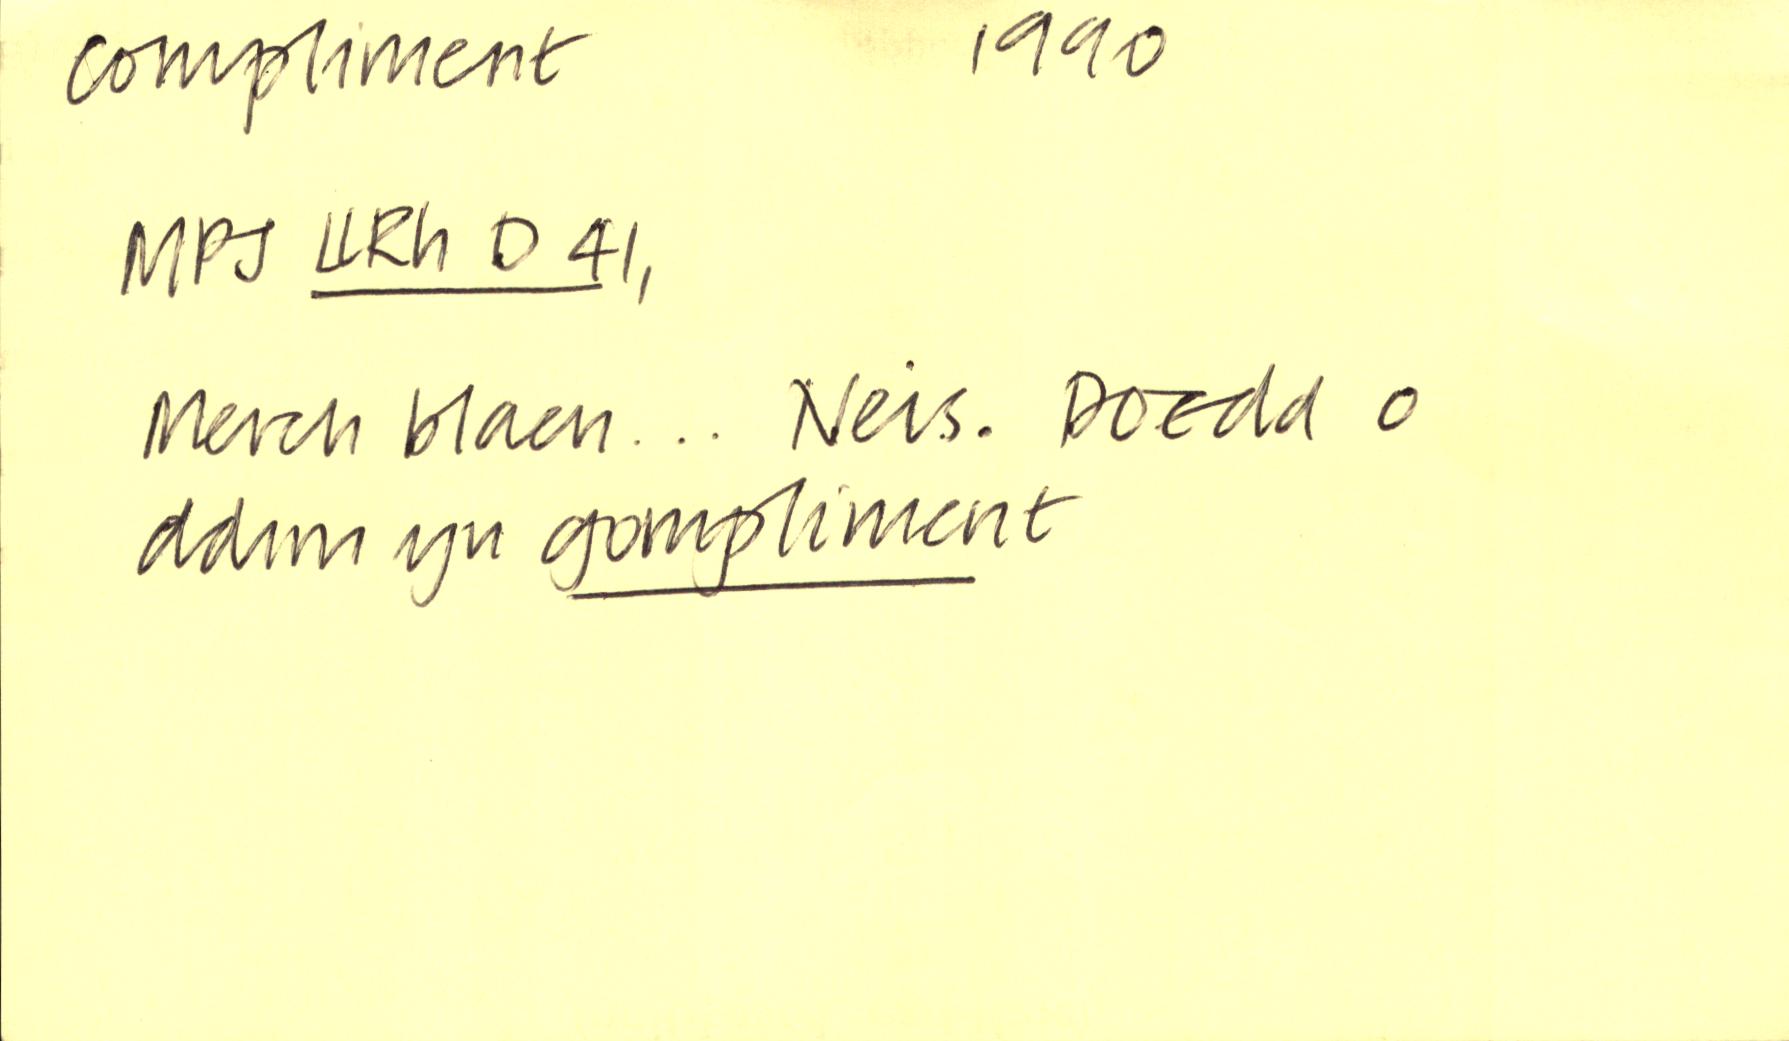 compliment 1990
MPJ LlRh D 41,
Merch blaen... Neis. Doedd o
ddim yn gompliment